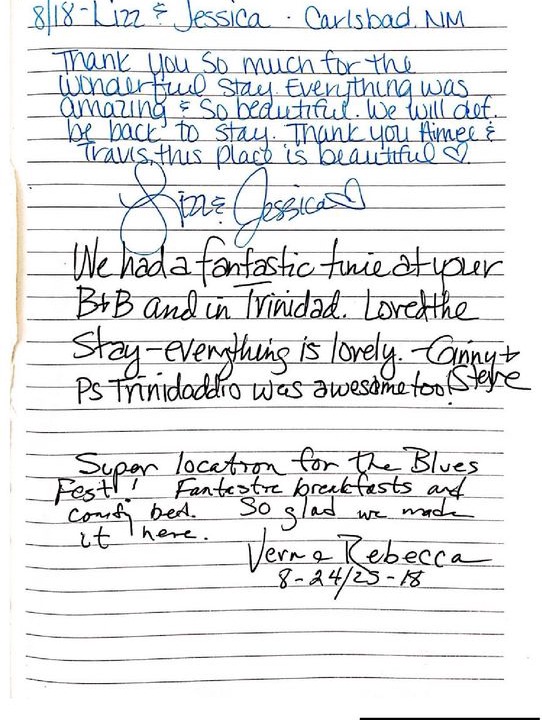 8/18-Lizz & Jessica · Carlsbad, NM
Thank you so much for the
wonderful stay. Everything was
amazing & so beautiful. We will def.
be back to stay. Thank you Aimee &
Travis, this place is beautiful ♡
Lizz & Jessica ♡
We had a fantastic time at your
B+B and in Trinidad. Loved the
Stay-everything is lovely. -Ginny +
Steve
Ps Trinidaddio was awesome too!
Super location for the Blues
Fest! Fantastic breakfasts and
comfy bed. So glad we made
it here.
Vern & Rebecca
8-24/25-18